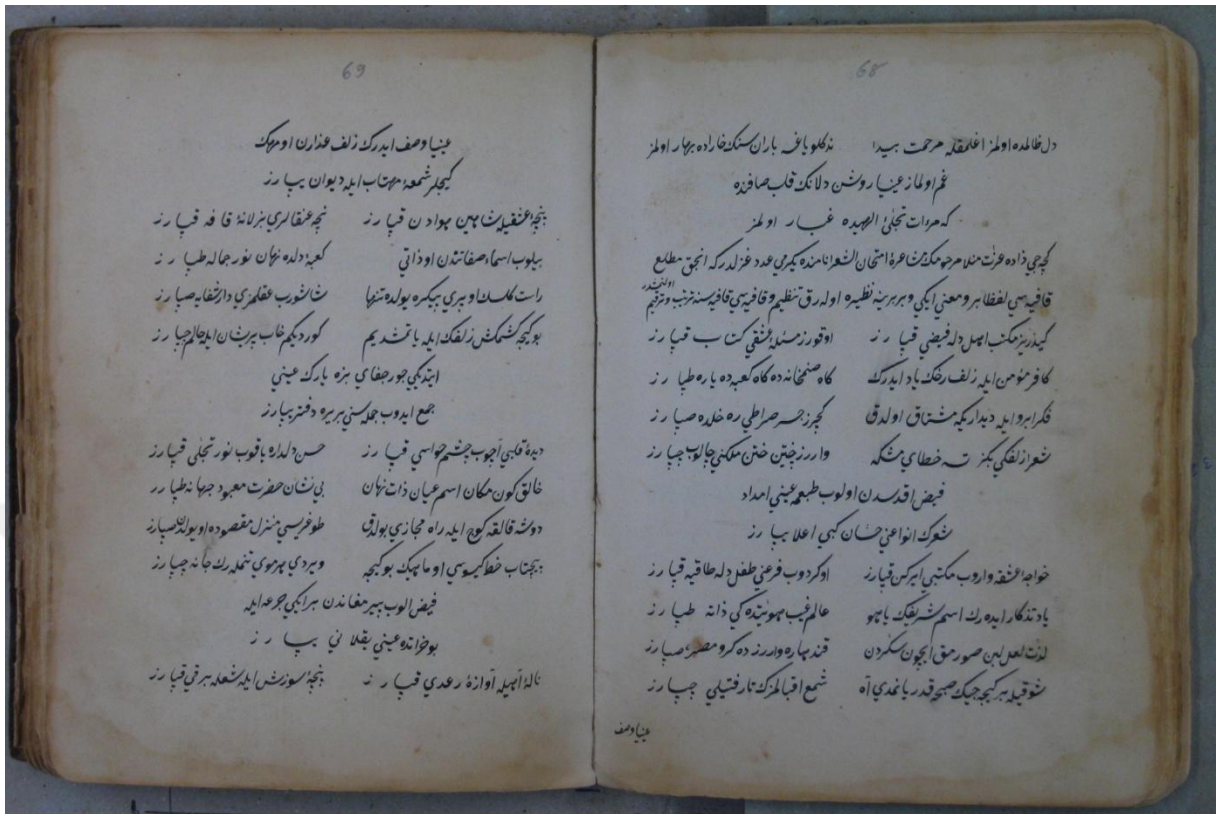 68
دل ظالمده اولمز اغلمقله مرحمت پیدا نه کلو یاغسه باران سنك خاراده بهار اولمز
غم اولماز عینیا روشن دلانك قلب صافنده
که مرآت تجلئ الهیده غبار اولمز
کچه جی زاده عزت منلا مرحومك مشاعره امتحان الشعرا نامنده یکرمی عدد غزلدر که انجق مطالع
قافیه سی لفظا بر و معنی ایکی و هر برینه نظیره اوله رق تنظیم و قافیه سی قافیه سنه ترتیب و ترقیم اولنمشدر
کیدرز مکتب اهل دله فیضی قپارز اوقورز مسئلۀ عشقی کتاب قپارز
کافر مؤمن ایله زلف رخك یاد ایدرك کاه صنمخانه ده کاه کعبه ده یاره طپارز
فکر ابرو ایله دیداریکه مشتاق اولدق کچرز جسر صراطی ره خلده صپارز
شعر زلفکی بکزتسه خطای مشکه وارر چین ختن ملکنی چالوب چپارز
فیض اقدسدن اولوب طبعمه عینی امداد
شعرك انواعنی حسان کبی اعلا یپارز
خواجۀ عشقه واروب مکتبی ایرکن قپارز اوکردوب فرعنی طفل دله طاقیه قپارز
یاد تذکار ایده رك اسم شریفك یاهو عالم غیب هویتده کی ذاته طپارز
لذت لعل لبن صورمق ایچون سکردن قندهاره وارر ده کرو مصره صپارز
شوقیله هر کیجه جیك صبحه قدر یاندی آه شمع اقبالمزك تار فتیلی چپارز
عینیا وصف
69
عینیا وصف ایدرك زلف عذارن او مهك
کیجه لر شمعۀ مهتاب ایله دیوان یپارز
پنجۀ عشقیله شاهین هوادن قپارز نیجه عنقالری بز لانۀ قافه قپارز
بیلوب اسماء صفاتندن او ذاتی کعبۀ دلده نهان نور جماله طپارز
راست کلسك او پری پیکره یولده تنها شاشورب عقلمزی دار شفایه صپارز
بو کیجه کشمکش زلفك ایله یاتمشدیم کوردیکم خاب پریشان ایله چپارز
ایتدیکی جور جفای بزه یارك عینی
جمع ایدوب جمله سنی بر یره دفتر یپارز
دیدۀ قلبی آچوب چشم حواسی قپارز حسن دلداره باقوب نور تجلی قپارز
خالق کون مکان اسم عیان ذات نهان بی نشان حضرت معبود جهانه طپارز
دوشه قالقه کوج ایله راه مجازی بولدق طوغریسی منزل مقصوده او یولدن صپارز
پیچتاب خط کیسوسی او ماهك بو کیجه ویردی پر موی تنمله رك جانه چپارز
فیض الوب پیر مغاندن بر ایکی جرعه ایله
بو خراته عینی یقلانی یپارز
نالۀ آهیله آوازۀ رعدی قپارز پنجۀ سوزش ایله شعلۀ برقی قپارز